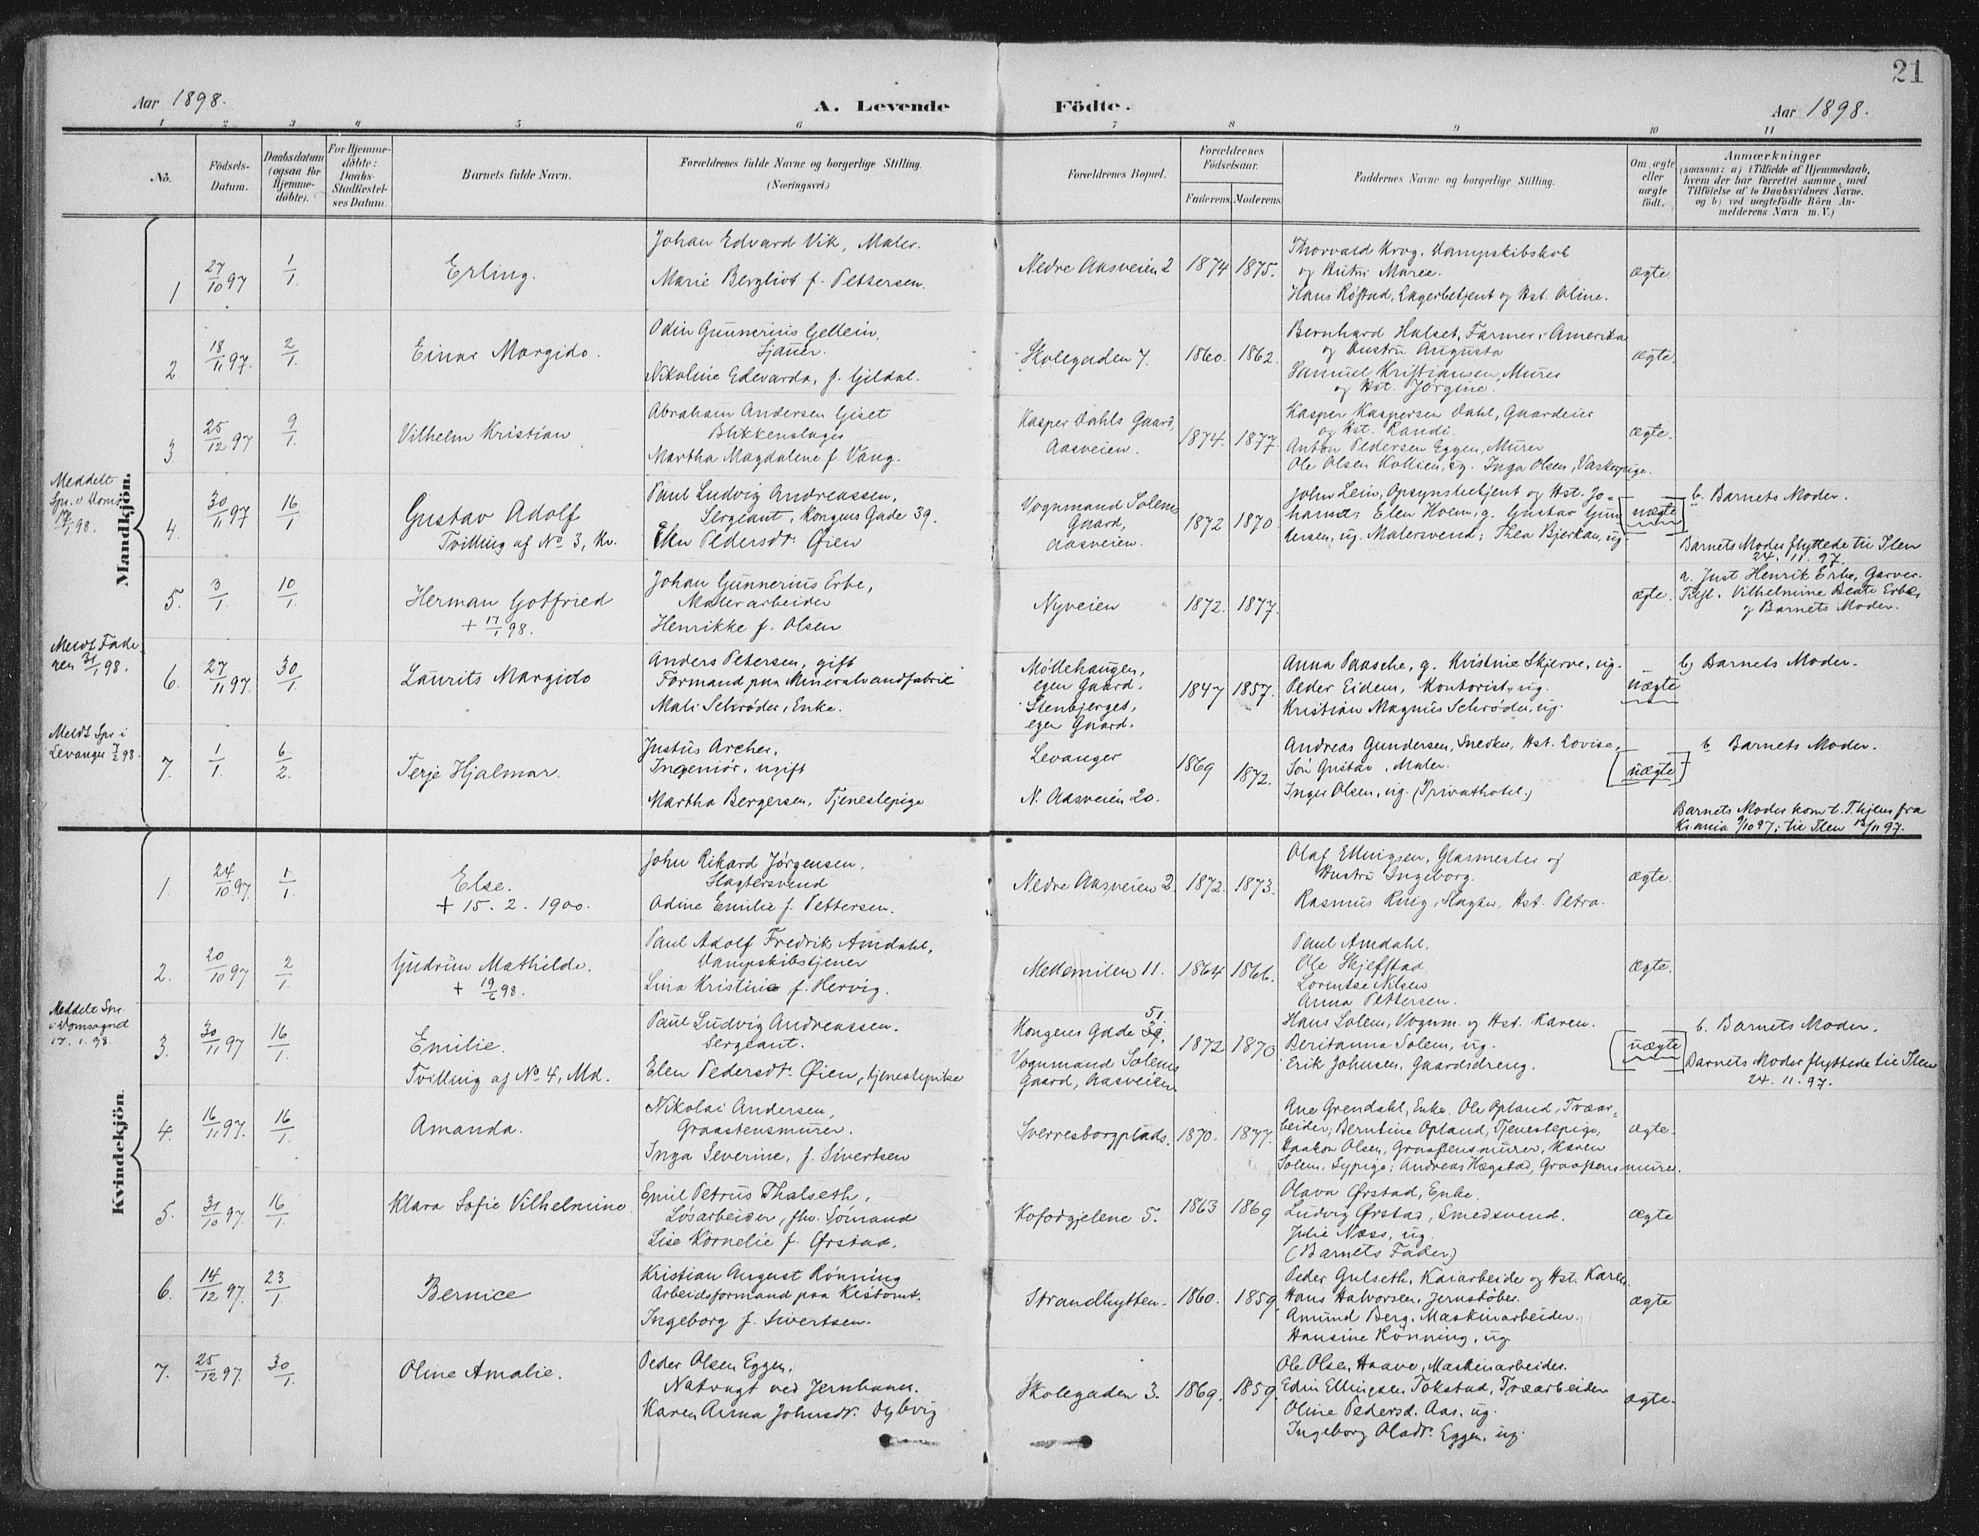 21
Aar 1898.
A. Levende Födte.
Aar 1898.
1 2 3 4 5 6 7 8 9 10 11
No.
Födsels-Datum.
Daabsdatum (ogsaa for Hjemme-döbte).
For Hjemme-döbte: Daabs-Stadfæstel-ses Datum.
Barnets fulde Navn.
Forældrenes fulde Navne og borgerlige Stilling.
(Næringsvei.)
Forældrenes Bopæl.
Forældrenes Födselsaar.
Faderens. Moderens.
Faddernes Navne og borgerlige Stilling.
Om ægte eller uægte födt.
Anmærkninger
(saasom: a) i Tilfælde af Hjemmedaab,
hvem der har forrettet samme, med
Tilföielse af to Daabsvidners Navne.
og b) ved uægtefödte Börn An-
melderens Navn m. V.)
Mandkjön.
1 27/10 97 1/1 Erling.
Johan Edvard Vik, Maler.
Marie Bergliot f. Pettersen.
Nedre Aasveien 2 1874 1875.
Thorvald Krog, Dampskibskok
og Hustru Maree.
Hans Røstad, Lagerbetjent og Hst. Oline.
ægte
2 18/11 97. 2/1 Einar Margido.
Odin Gunnerius Gellein,
Sjauer.
Nikoline Edevarda, f. Gildal.
Skolegaden 7. 1860. 1862.
Bernhard Halset, Farmer i Amerika
og Hustru Augusta
Samuel Kristiansen, Murer
og Hst. Jørgine.
ægte.
3 25/12 97 9/1. Vilhelm Kristian
Abraham Andersen Giset
Blikkenslager
Martha Magdalene f. Vang.
Kasper Dahls Gaard,
Aasveien.
1874. 1877.
Kasper Kaspersen Dahl, Gaardeier
og Hst. Randi.
Anton Pedersen Eggen, Murer
Ole Olsen Kollien, ug. Inga Olsen, Vaskepige.
ægte.
Meddelt
Spr. i Doms
17/1 98.
4. 30/11 97 16/1 Gustav Adolf
Tvilling af No 3, Kv.
Paul Ludvig Andreassen,
Sergeant, Kongens Gade 39.
Elen Pedersdr. Øien
Vognmand Solems
Gaard,
Aasveien.
1872 1870
John Lein, Opsynsbetjent og Hst. Jo-
hanna; Elen Hoem, g. Gustav Gun
dersen, ug. Malersvend; Thea Bjerkan, ug.
uægte
b. Barnets Moder.
Barnets Moder flyttede til Ilen
24. 11. 97.
5. 3/1. 10/1 Herman Gotfried
+ 17/1 98.
Johan Gunnerius Erbe,
Malerarbeider
Henrikke f. Olsen
Nyveien 1872. 1877.
ægte.
a. Just Henrik Erbe, Garver.
Kjl. Vilhelmine Beate Erbes
og Barnets Moder.
Meldt Fade-
ren 31/1 98.
6. 27/11 97. 30/1. Laurits Margido
Anders Petersen, gift
Formand paa Mineralvandfabrik
Mali Schrøder, Enke.
Møllehaugen,
egen Gaard.
Stenbjerget,
egen Gaard.
1847 1857.
Anna Paasche, g. Kristine Skjerve, ug.
Peder Eidem, Kontorist, ug.
Kristian Magnus Schrøder, ug.
uægte
b) Barnets Moder.
Meldt Spr i
Levanger 7/2 98.
7. 1/1. 6/2. Terje Hjalmar.
Justus Archer,
Ingeniør, ugift
Martha Bergersen, Tjenestepige
Levanger
N. Aasveien 20.
1869 1872.
Andreas Gundersen, Snedker, Hst. Lovise,
Søn Gustav, Maler.
Inger Olsen, ug. (Privathotel)
uægte
b Barnets Moder.
Barnets Moder kom t. Thjem fra
Kr.ania 9/10 97; til Ilen 12/11 97.
Kvindekjön.
1. 24/10 97. 1/1 Else.
+ 15. 2. 1900.
John Rikard Jørgensen,
Slagtersvend
Odine Emilie f. Pettersen.
Nedre Aasveien 2. 1872. 1873.
Olaf Ellingsen, Glasmester og
Hustru Ingeborg.
Rasmus Ring, Slagter, Hst. Petra.
ægte.
2. 20/10 97 2/1. Gudrun Mathilde.
+ 19/6 98.
Paul Adolf Fredrik Amdahl,
Dampskibstjener
Lina Kristine f. Hervig.
Mellemilen 11. 1864 1866.
Paul Amdahl.
Ole Skjefstad
Lorentse Nilsen
Anna Pettersen.
ægte.
Meddelt Spr
i Domsognet
17. 1. 98.
3. 30/11 97 16/1 Emilie.
Tvilling af No 4, Md.
Paul Ludvig Andreassen.
Sergeant.
Elen Pedersdr. Øien, tjenestepike
51
Kongens Gade 39.
Vognmand Solems
Gaard, Aasveien
1872 1870
Hans Solem, Vognm. og Hst. Karen.
Beritanna Solem, ug.
Erik Johnsen, Gaardsdreng.
uægte
b. Barnets Moder.
Barnets Moder flyttede til Ilen
24. 11. 97.
4. 16/11 97. 16/1 Amanda.
Nikolai Andersen,
Graastensmurer.
Inga Severine, f. Sivertsen
Sverresborgplads. 1870. 1877.
Ane Grendahl, Enke. Ole Opland, Træar-
beider; Berntine Opland, Tjenestepige,
Haakon Olsen, Graastensmurer, Karen
Solem, Sypige; Andreas Hegstad, Graastensmurer.
ægte.
5. 31/10 97. 16/1. Klara Sofie Vilhelmine
Emil Petrus Thalseth,
Løsarbeider, fhv. Sømand
Lise Kornelie f. Ørstad.
Kofodgjelene 5. 1863 1869
Olava Ørstad, Enke.
Ludvig Ørstad, Smedsvend.
Julie Næss, ug.
(Barnets Fader)
ægte
6. 14/12 97. 23/1. Bernice
Kristian August Rönning
Arbeidsformand paa Kistomt.
Ingeborg f. Sivertsen.
Strandhytten. 1860. 1859.
Peder Gulseth, Kaiarbeider og Hst. Karen
Hans Halvorsen, Jernstøber.
Amund Berg, Maskinarbeider.
Hansine Rönning, ug.
ægte
7. 25/12 97. 30/1. Oline Amalie.
Peder Olsen Eggen,
Natvagt ved Jernbanen.
Karen Anna Johnsdr. Dybvig
Skolegaden 3. 1869. 1859.
Ole Olsen Haave, Maskinarbeider.
Edin Ellingsen Tokstad, Træarbeider
Oline Pedersd. Aas, ug.
Ingeborg Olsdr. Eggen, ug.
ægte.